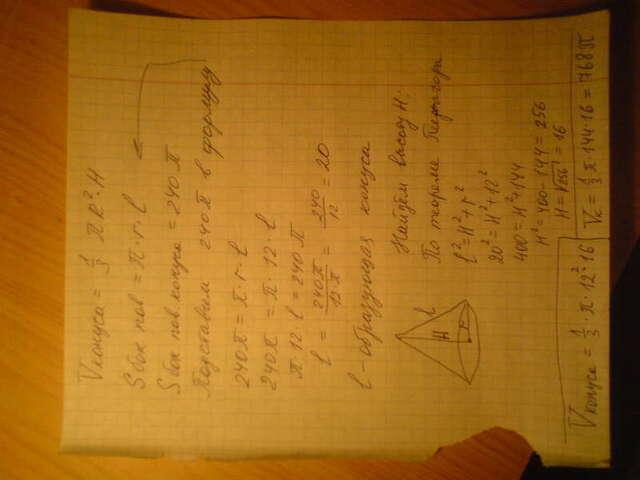 Vконуса = 1/3 πR²·H
Sбок пов = π·r·l
Sбок пов конуса = 240π
Подставим 240π в формулу
240π = π·r·l
240π = π·12·l
π·12·l = 240π
l = 240π/12·π = 240/12 = 20
l - образующая конуса
l
H
r
Найдём высоту H:
По теореме Пифагора
l² = H² + r²
20² = H² + 12²
400 = H² + 144
H² = 400 - 144 = 256
H = √256 = 16
Vконуса = 1/3 · π · 12² · 16
Vк = 1/3 π · 144 · 16 = 768π